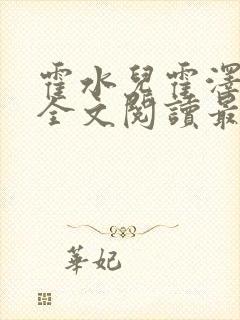 霍水兒霍澤
全文閱讀最
華妃